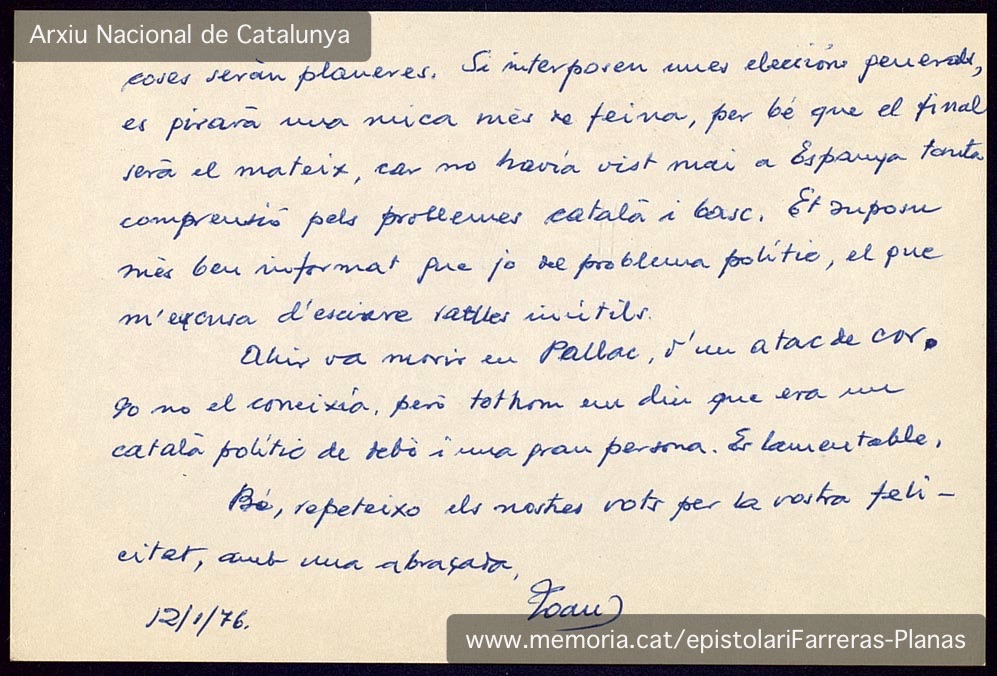 Arxiu Nacional de Catalunya
coses seràn planeres. Si interposen unes eleccións generals,
es pirarà una mica més de feina, per bé que el final
serà el mateix, car no havía vist mai a Espanya tanta
comprensió pels problemes català i basc. Et suposu
més ben informat que jo del problema polític, el que
m'excusa d'escriure ratlles inútils.
Ahir va morir en Pallac, d'un atac de cor.
Jo no el coneixía, però tothom em diu que era un
català polític de debò i una gran persona. Es lamentable.
Bé, repeteixo els nostres vots per la vostra feli-
citat, amb una abraçada,
Joan
12/1/76.
www.memoria.cat/epistolariFarreras-Planas